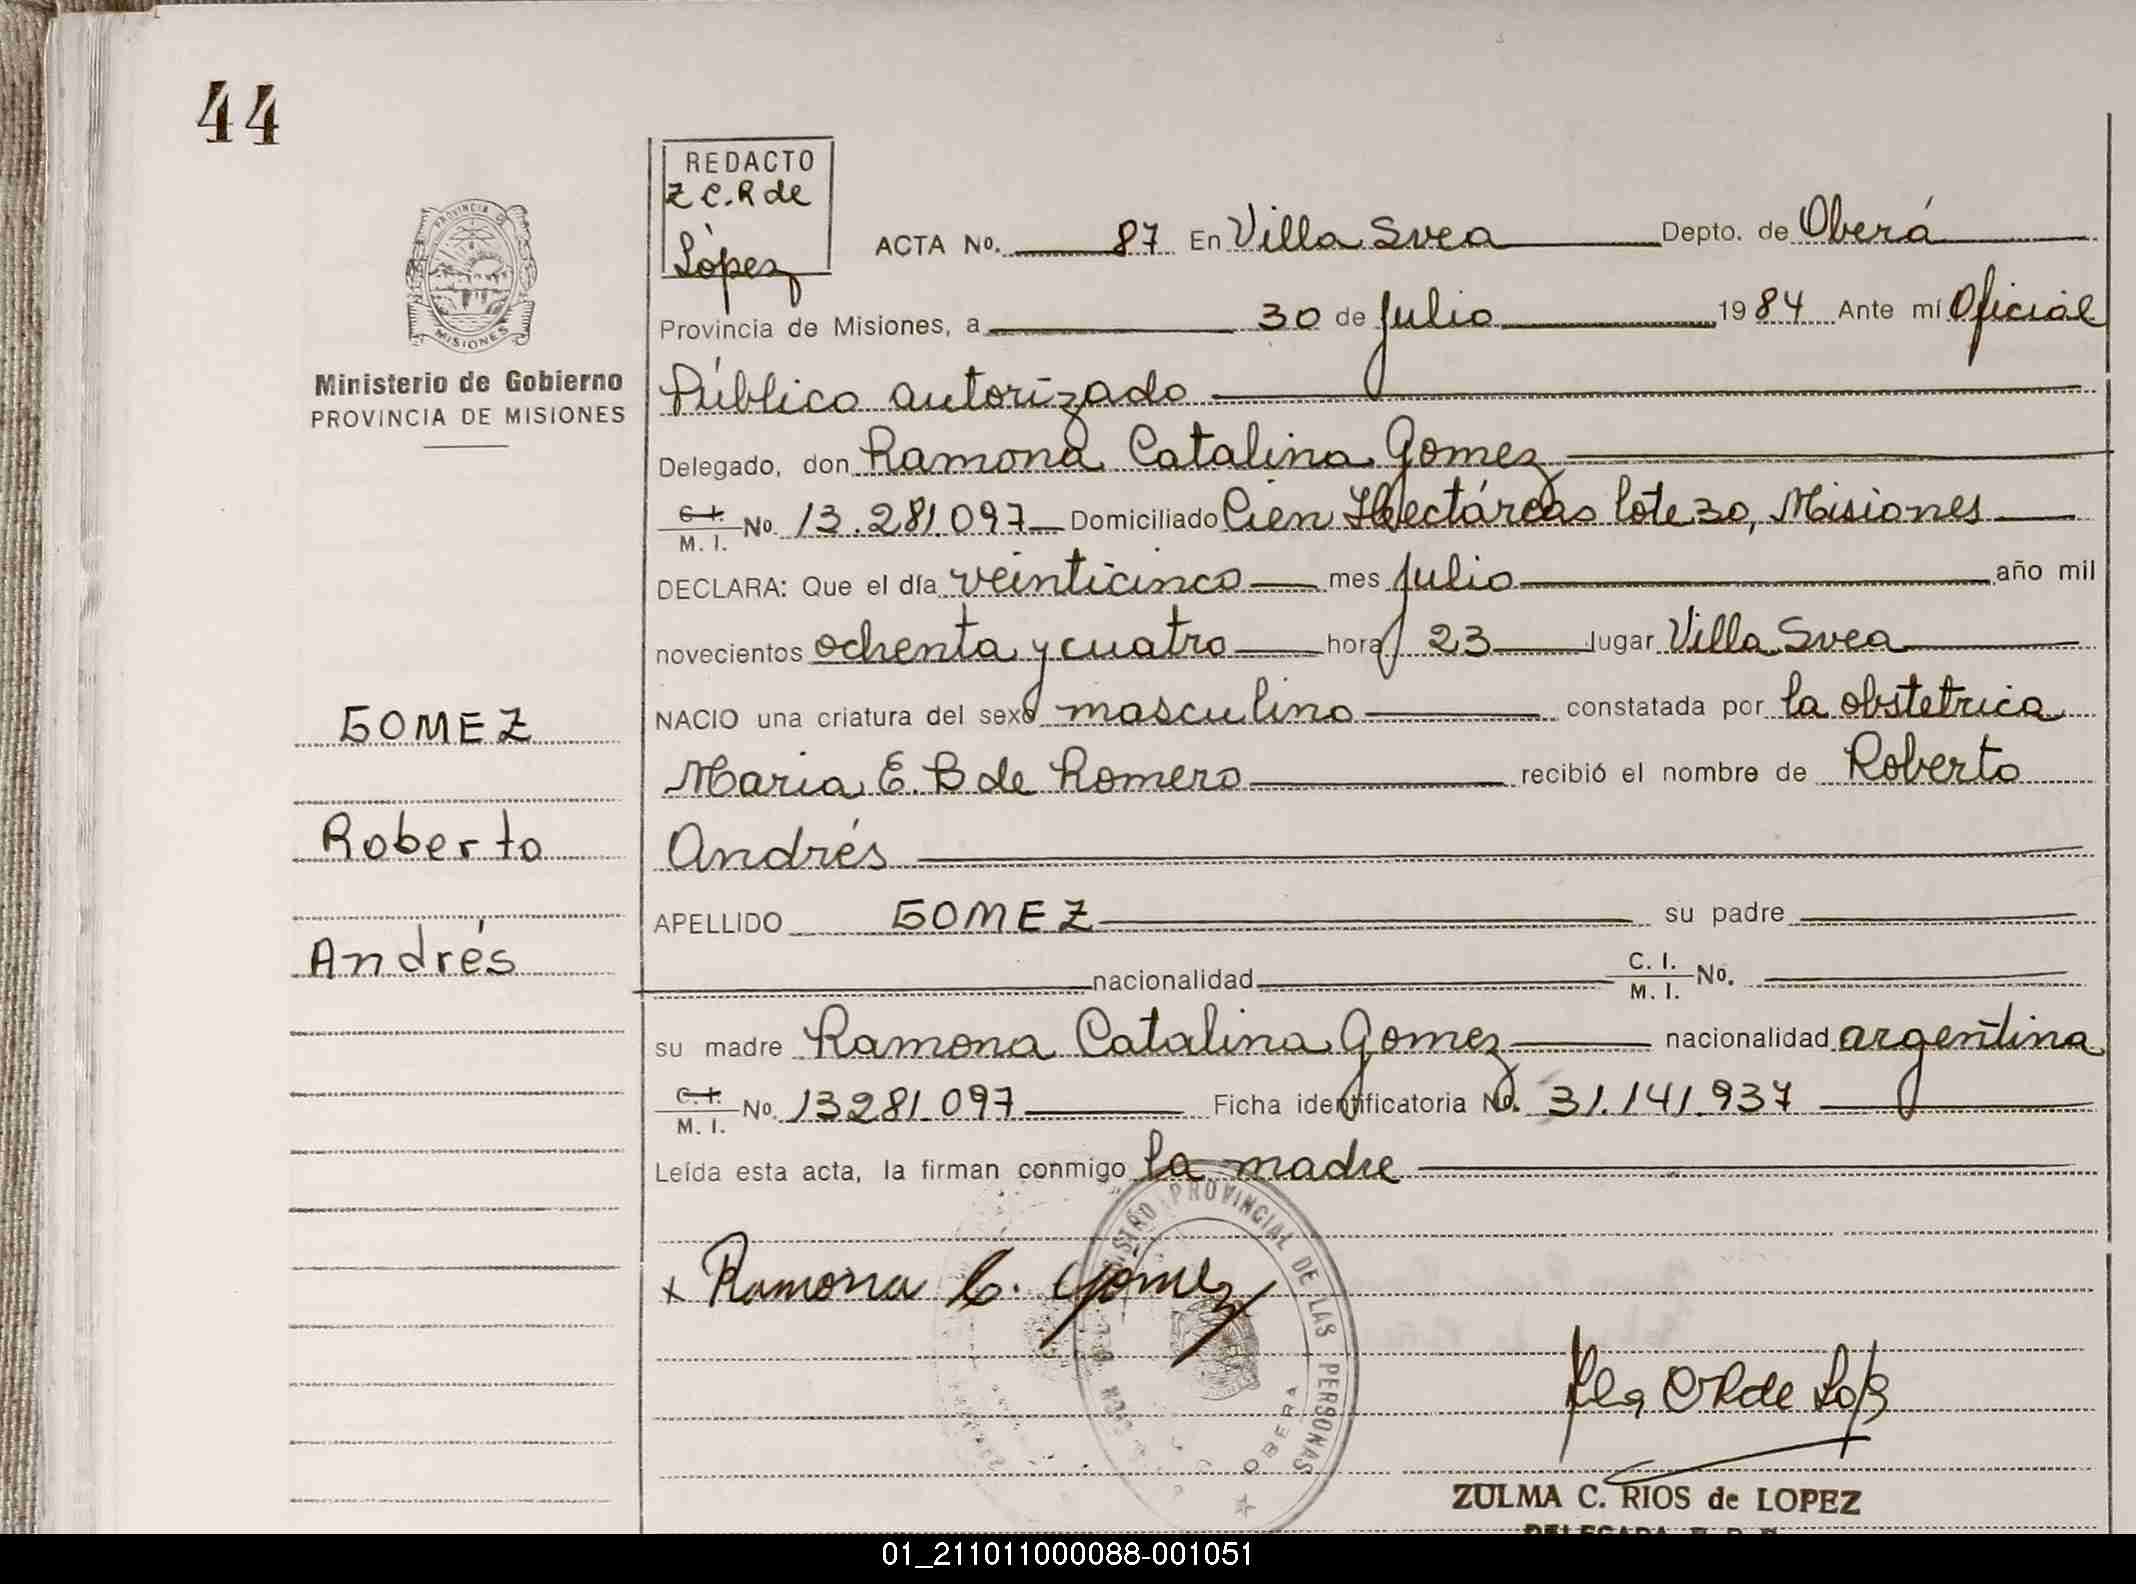 44
REDACTO
Z C. R de
López
PROVINCIA D
MISIONES
Ministerio de Gobierno
PROVINCIA DE MISIONES
ACTA No. 87 En Villa Svea Depto. de Oberá
Provincia de Misiones, a 30 de Julio 1984 Ante mí Oficial
Público autorizado
Delegado, don Ramona Catalina Gomez
C. I. / M. I. No. 13.281.097 Domiciliado Cien Hectáreas lote 30, Misiones
DECLARA: Que el día veinticinco mes Julio año mil
novecientos ochenta y cuatro hora 23 lugar Villa Svea
NACIO una criatura del sexo masculino constatada por la obstetrica
Maria E. B de Romero recibió el nombre de Roberto
Andrés
APELLIDO GOMEZ su padre
nacionalidad C. I. / M. I. No.
su madre Ramona Catalina Gomez nacionalidad argentina
C. I. / M. I. No. 13281.097 Ficha identificatoria No. 31.141.937
Leída esta acta, la firman conmigo la madre
GOMEZ
Roberto
Andrés
x Ramona C. Gómez
PROVINCIAL DE LAS PERSONAS
OBERA
ZULMA C. RIOS de LOPEZ
01_211011000088-001051